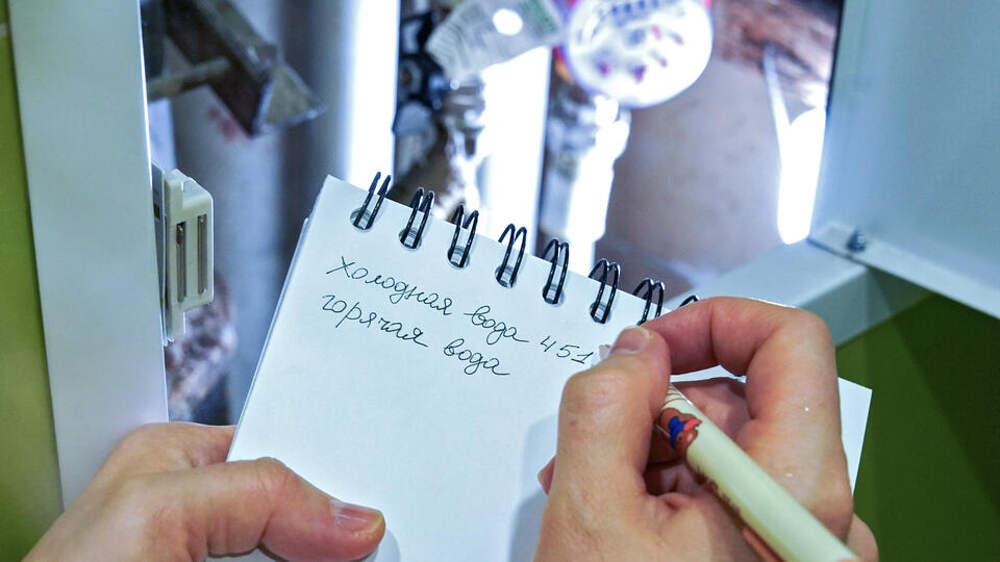 холодная вода 451
горячая вода